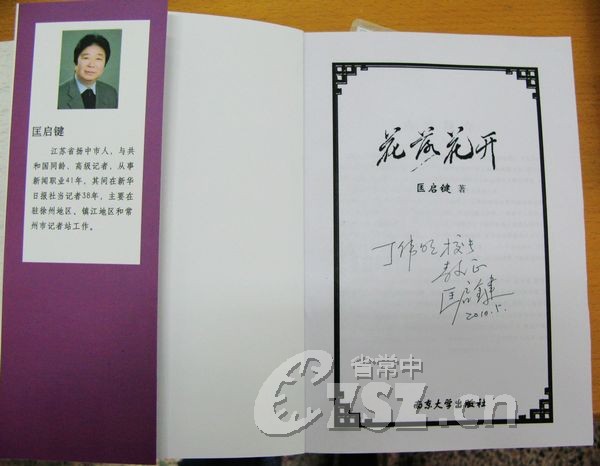 匡启键
江苏省扬中市人，与共
和国同龄、高级记者，从事
新闻职业41年，其间在新华
日报社当记者38年，主要在
驻徐州地区、镇江地区和常
州市记者站工作。
花落花开
匡启键 著
丁伟明校长
教正
匡启键
2010.5.
省常中
CZSZ.cn
南京大学出版社